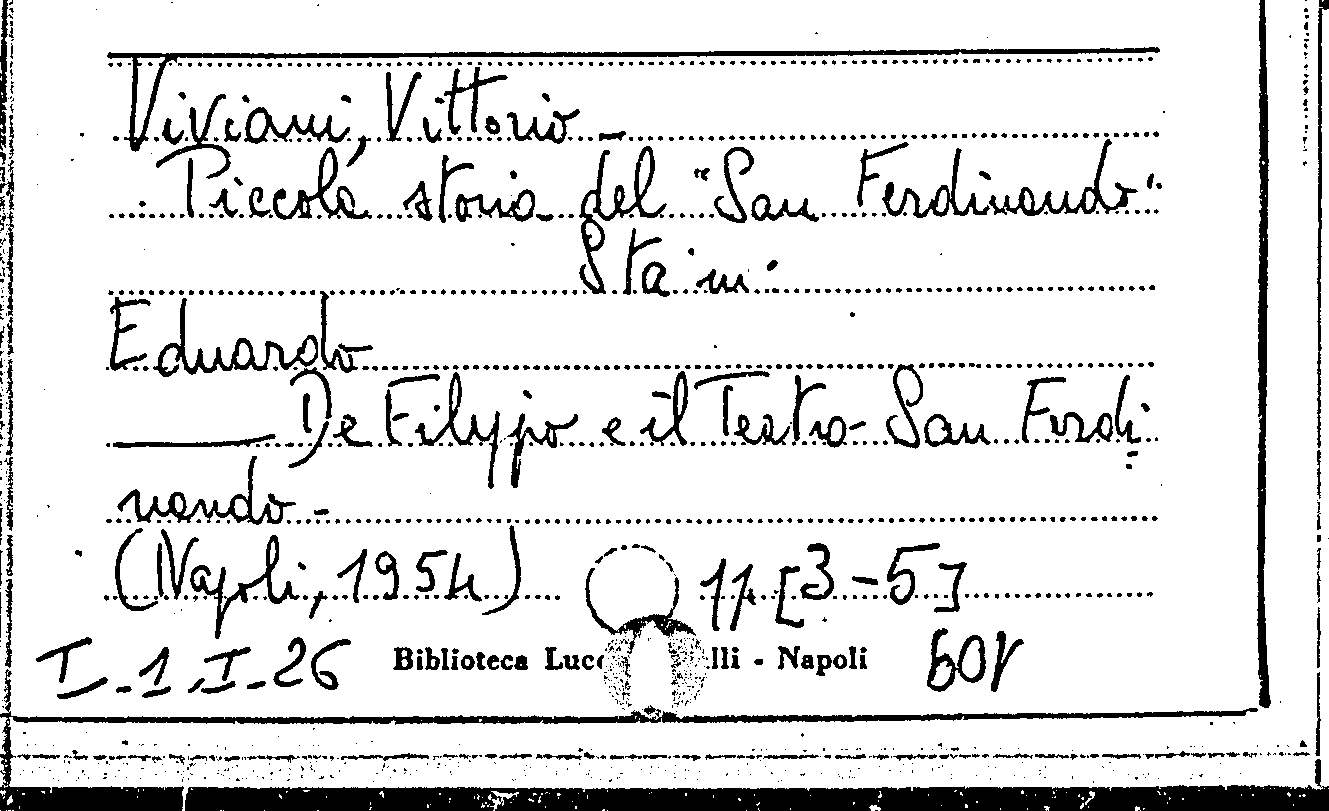 Viviani, Vittorio -
Piccola storia del "San Ferdinando"
Sta in:
Eduardo
De Filippo e il Teatro San Ferdi=
nando -
(Napoli, 1954) 11. [3-5]
I-1.I-26 Biblioteca Luc lli - Napoli